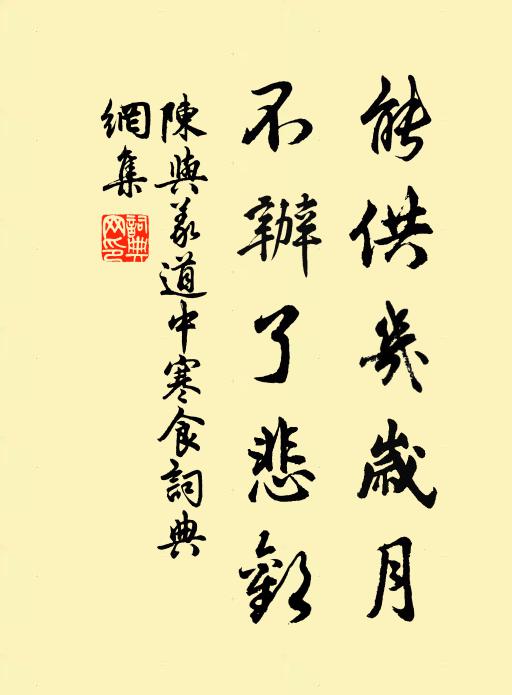 能供幾歲月
不辦了悲歡
陳與義道中寒食詞典
網集
詞典
网印